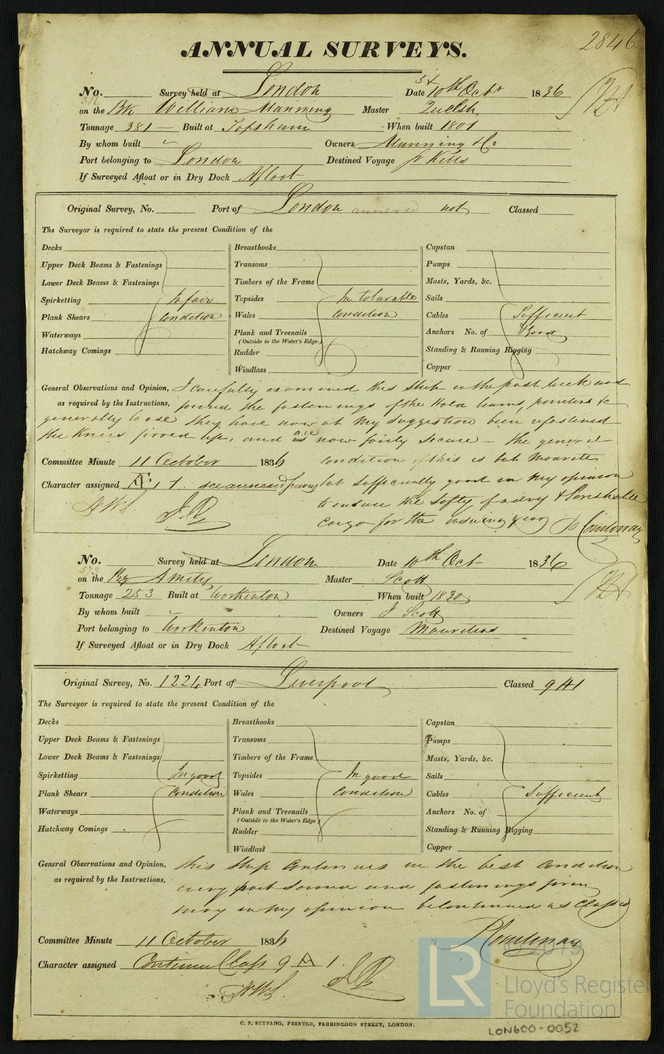 2846
ANNUAL SURVEYS.
No. Survey held at London Date 10th Octr 1836
on the Bk William Manning Master
Tonnage 381 Built at Topsham When built 1801
By whom built Owners Manning & Co
Port belonging to London Destined Voyage St Kitts
If Surveyed Afloat or in Dry Dock Afloat
Original Survey, No. Port of London annexed not Classed
The Surveyor is required to state the present Condition of the
Decks Breasthooks Capstan
Upper Deck Beams & Fastenings Transoms Pumps
Lower Deck Beams & Fastenings Timbers of the Frame Masts, Yards, &c.
Spirketting In fair Topsides In tolarable Sails
Plank Shears Condition Wales Condition Cables Sufficient
Waterways Plank and Treenails Anchors No. of Good
(Outside to the Water's Edge)
Hatchway Comings Rudder Standing & Running Rigging
Windlass Copper
General Observations and Opinion, I carefully examined this Ship in the past week and
as required by the Instructions, found the fastenings of the Hold beams, pointers &c
generally loose they have now at my suggestion been refastened
the Knees firred up, and is now fairly secure - the general
Committee Minute 11 October 1836 condition of this is but
Character assigned 1. see annexed but sufficiently good in my opinion
to ensure the safty of a dry & Perishable
cargo for the ensuing year
No. Survey held at London Date 10th Oct 1836
on the Bg Amity Master Scott
Tonnage 253 Built at Workinton When built 1830
By whom built Owners J Scott
Port belonging to Workinton Destined Voyage Mauritius
If Surveyed Afloat or in Dry Dock Afloat
Original Survey, No. 1224 Port of Liverpool Classed 9 A1
The Surveyor is required to state the present Condition of the
Decks Breasthooks Capstan
Upper Deck Beams & Fastenings Transoms Pumps
Lower Deck Beams & Fastenings Timbers of the Frame Masts, Yards, &c.
Spirketting In good Topsides In good Sails
Plank Shears Condition Wales Condition Cables Sufficient
Waterways Plank and Treenails Anchors No. of
(Outside to the Water's Edge)
Hatchway Comings Rudder Standing & Running Rigging
Windlass Copper
General Observations and Opinion, this Ship Continues in the best Condition
as required by the Instructions, every part sound and fastenings firm
may in my opinion be continued as Classed
Committee Minute 11 October 1836
Character assigned Continue Class 9 A 1.
C. F. SEYFANG, PRINTER, FARRINGDON STREET, LONDON.
LR
© 2019
Lloyd's Register
Foundation
LON600-0052